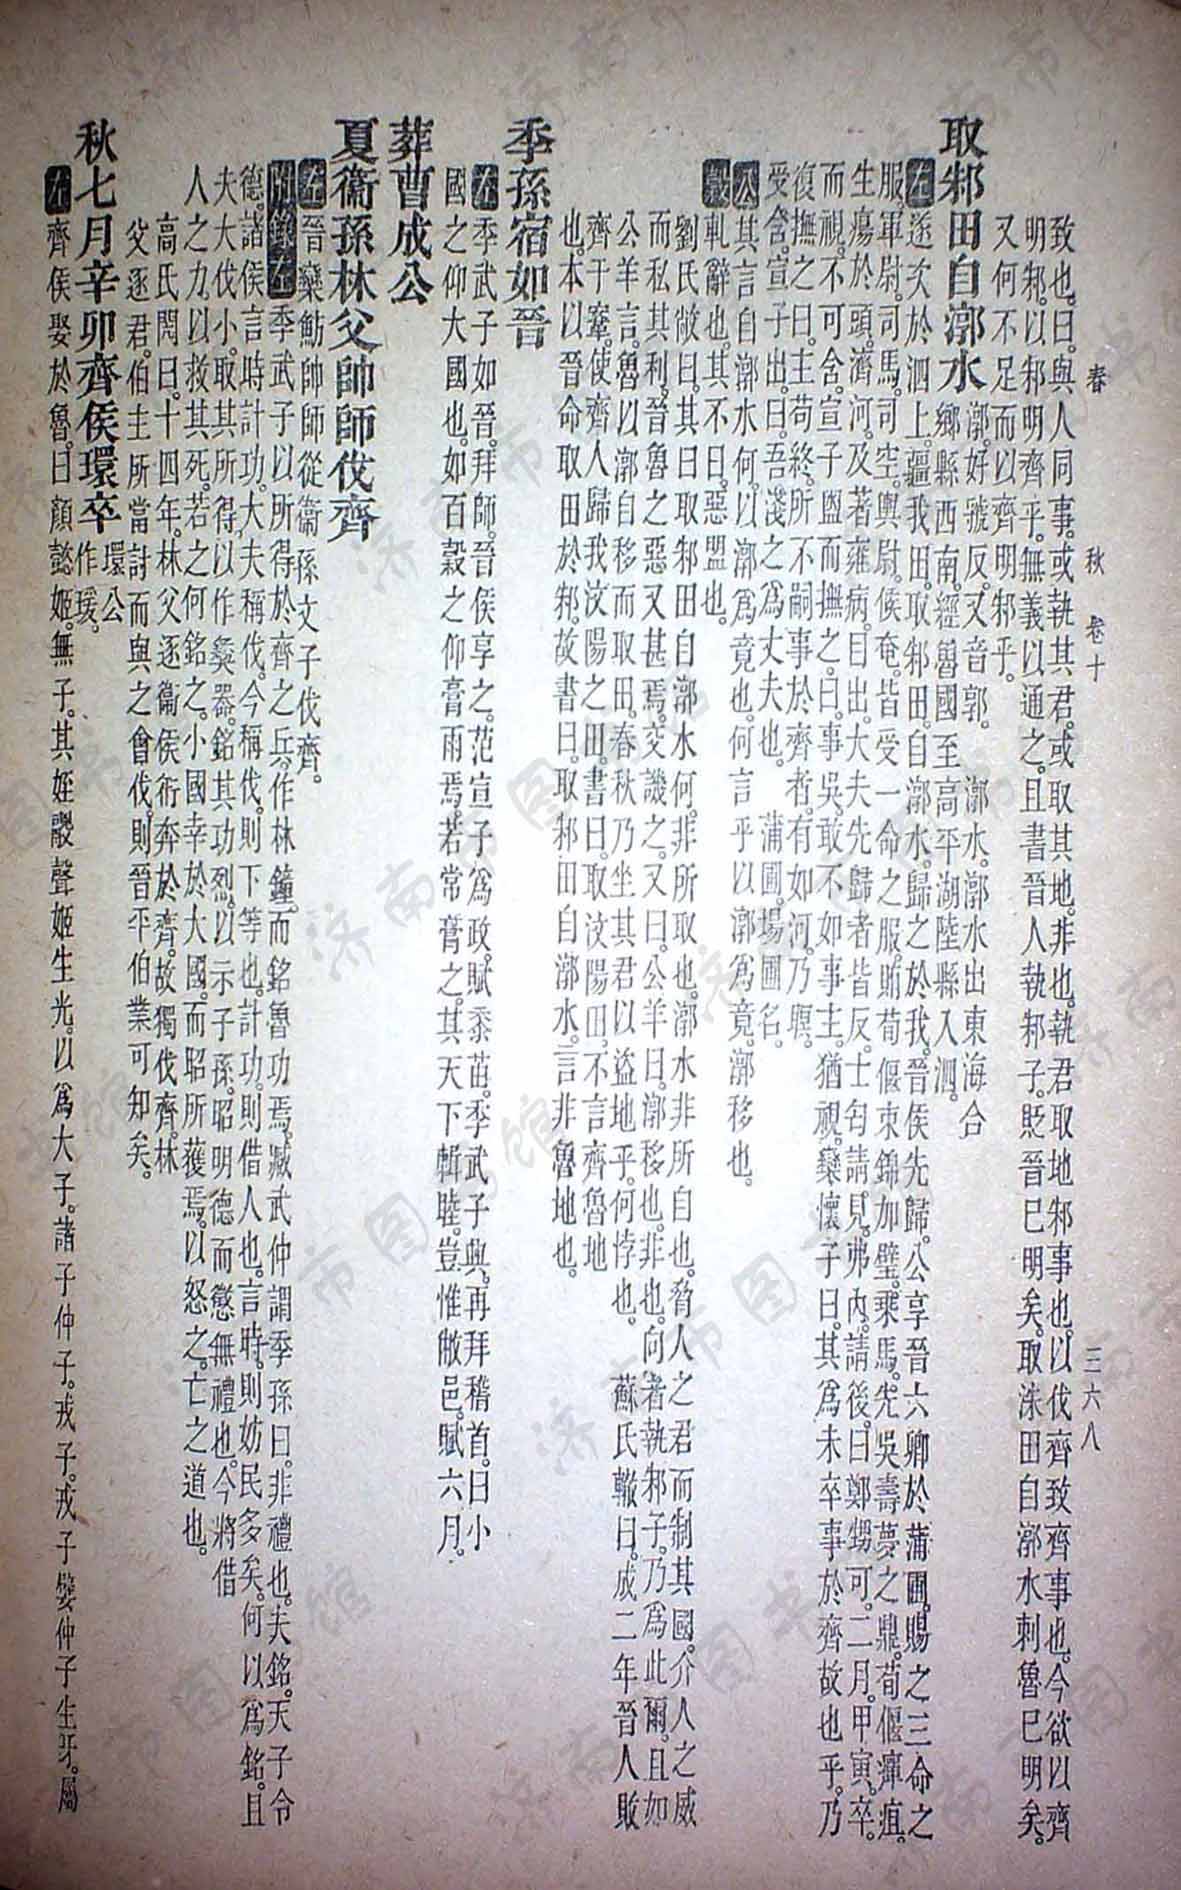 春　秋　卷十　三六八
致也曰與人同事或執其君或取其地非也執君取地邾事也以伐齊致齊事也今欲以齊
明邾以邾明齊乎無義以通之且書晉人執邾子貶晉已明矣取洙田自漷水刺魯已明矣
又何不足而以齊明邾乎
取邾田自漷水
漷好虢反又音郭　漷水漷水出東海合
鄉縣西南經魯國至高平湖陸縣入泗
左遂次於泗上疆我田取邾田自漷水歸之於我晉侯先歸公享晉六卿於蒲圃賜之三命之
服軍尉司馬司空輿尉侯奄皆受一命之服賄荀偃束錦加璧乘馬先吳壽夢之鼎荀偃癉疽
生瘍於頭濟河及著雍病目出大夫先歸者皆反士匄請見弗內請後曰鄭甥可二月甲寅卒
而視不可含宣子盥而撫之曰事吳敢不如事主猶視欒懷子曰其爲未卒事於齊故也乎乃
復撫之曰主苟終所不嗣事於齊者有如河乃瞑
受含宣子出曰吾淺之爲丈夫也　蒲圃場圃名
公其言自漷水何以漷爲竟也何言乎以漷爲竟漷移也
穀軋辭也其不日惡盟也
劉氏敞曰其曰取邾田自漷水何非所取也漷水非所自也脅人之君而制其國介人之威
而私其利晉魯之惡又甚焉交譏之又曰公羊曰漷移也非也向者執邾子乃爲此爾且如
公羊言魯以漷自移而取田春秋乃坐其君以盜地乎何悖也　蘇氏轍曰成二年晉人敗
齊于鞌使齊人歸我汶陽之田書曰取汶陽田不言齊魯地
也本以晉命取田於邾故書曰取邾田自漷水言非魯地也
季孫宿如晉
左季武子如晉拜師晉侯享之范宣子爲政賦黍苗季武子興再拜稽首曰小
國之仰大國也如百穀之仰膏雨焉若常膏之其天下輯睦豈惟敝邑賦六月
葬曹成公
夏衞孫林父帥師伐齊
左晉欒魴帥師從衞孫文子伐齊
附錄左季武子以所得於齊之兵作林鐘而銘魯功焉臧武仲謂季孫曰非禮也夫銘天子令
德諸侯言時計功大夫稱伐今稱伐則下等也計功則借人也言時則妨民多矣何以爲銘且
夫大伐小取其所得以作彝器銘其功烈以示子孫昭明德而懲無禮也今將借
人之力以救其死若之何銘之小國幸於大國而昭所獲焉以怒之亡之道也
高氏閌曰十四年林父逐衞侯衎奔於齊故獨伐齊林
父逐君伯主所當討而與之會伐則晉平伯業可知矣
秋七月辛卯齊侯環卒
環公
作瑗
左齊侯娶於魯曰顏懿姬無子其姪鬷聲姬生光以爲大子諸子仲子戎子戎子嬖仲子生牙屬